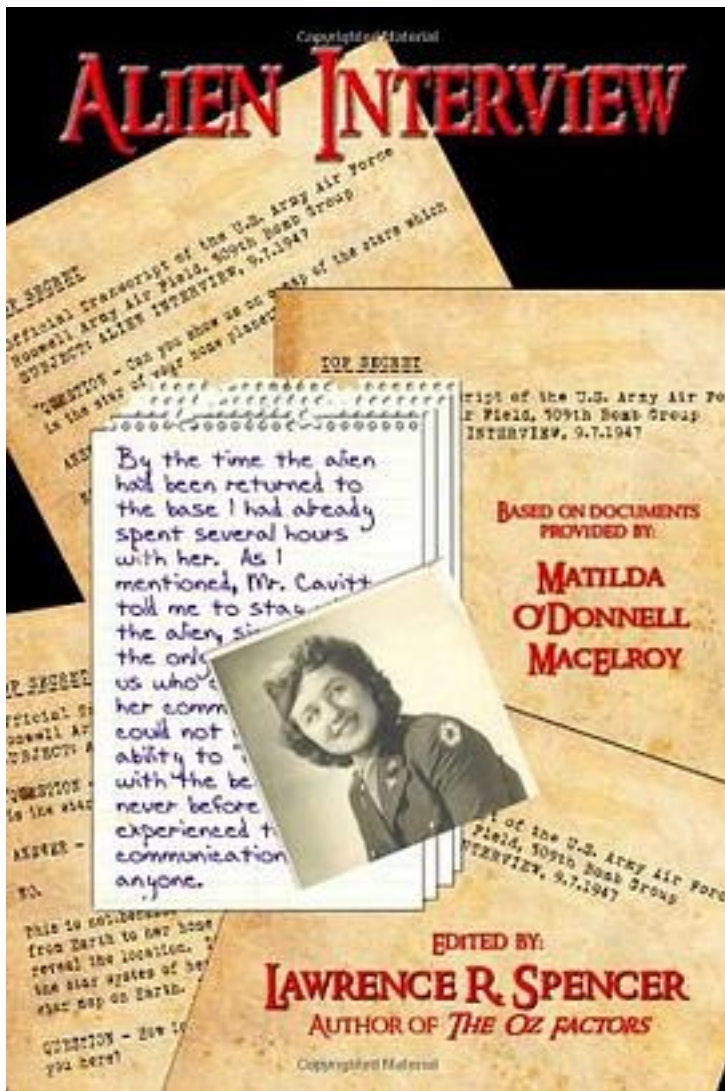 Copyrighted Material
ALIEN INTERVIEW
TOP SECRET
Official Transcript of the U.S. Army Air Force
Roswell Army Air Field, 509th Bomb Group
SUBJECT: ALIEN INTERVIEW, 9.7.1947
"QUESTION - Can you show us on a map of the stars which
is the star of your home planet
TOP SECRET
ript of the U.S. Army Air Fo
r Field, 509th Bomb Group
INTERVIEW, 9.7.1947
By the time the alien
had been returned to
the base I had already
spent several hours
with her. As I
mentioned, Mr. Cavitt
told me to stay
the alien, si
the only
us who
her comm
could not
ability to
with the be
never before
experienced t
communication
anyone.
BASED ON DOCUMENTS
PROVIDED BY:
MATILDA
O'DONNELL
MACELROY
P SECRET
fficial T
oswell Ar
UBJECT: A
QUESTION -
is the star
ANSWER -
NO.
This is not
from Earth to her home
reveal the location.
the star system of he
star map on Earth.
QUESTION - How lo
you here?
t of the U.S. Army Air Forc
Field, 509th Bomb Group
NTERVIEW, 9.7.1947
EDITED BY:
LAWRENCE R. SPENCER
AUTHOR OF THE OZ FACTORS
Copyrighted Material